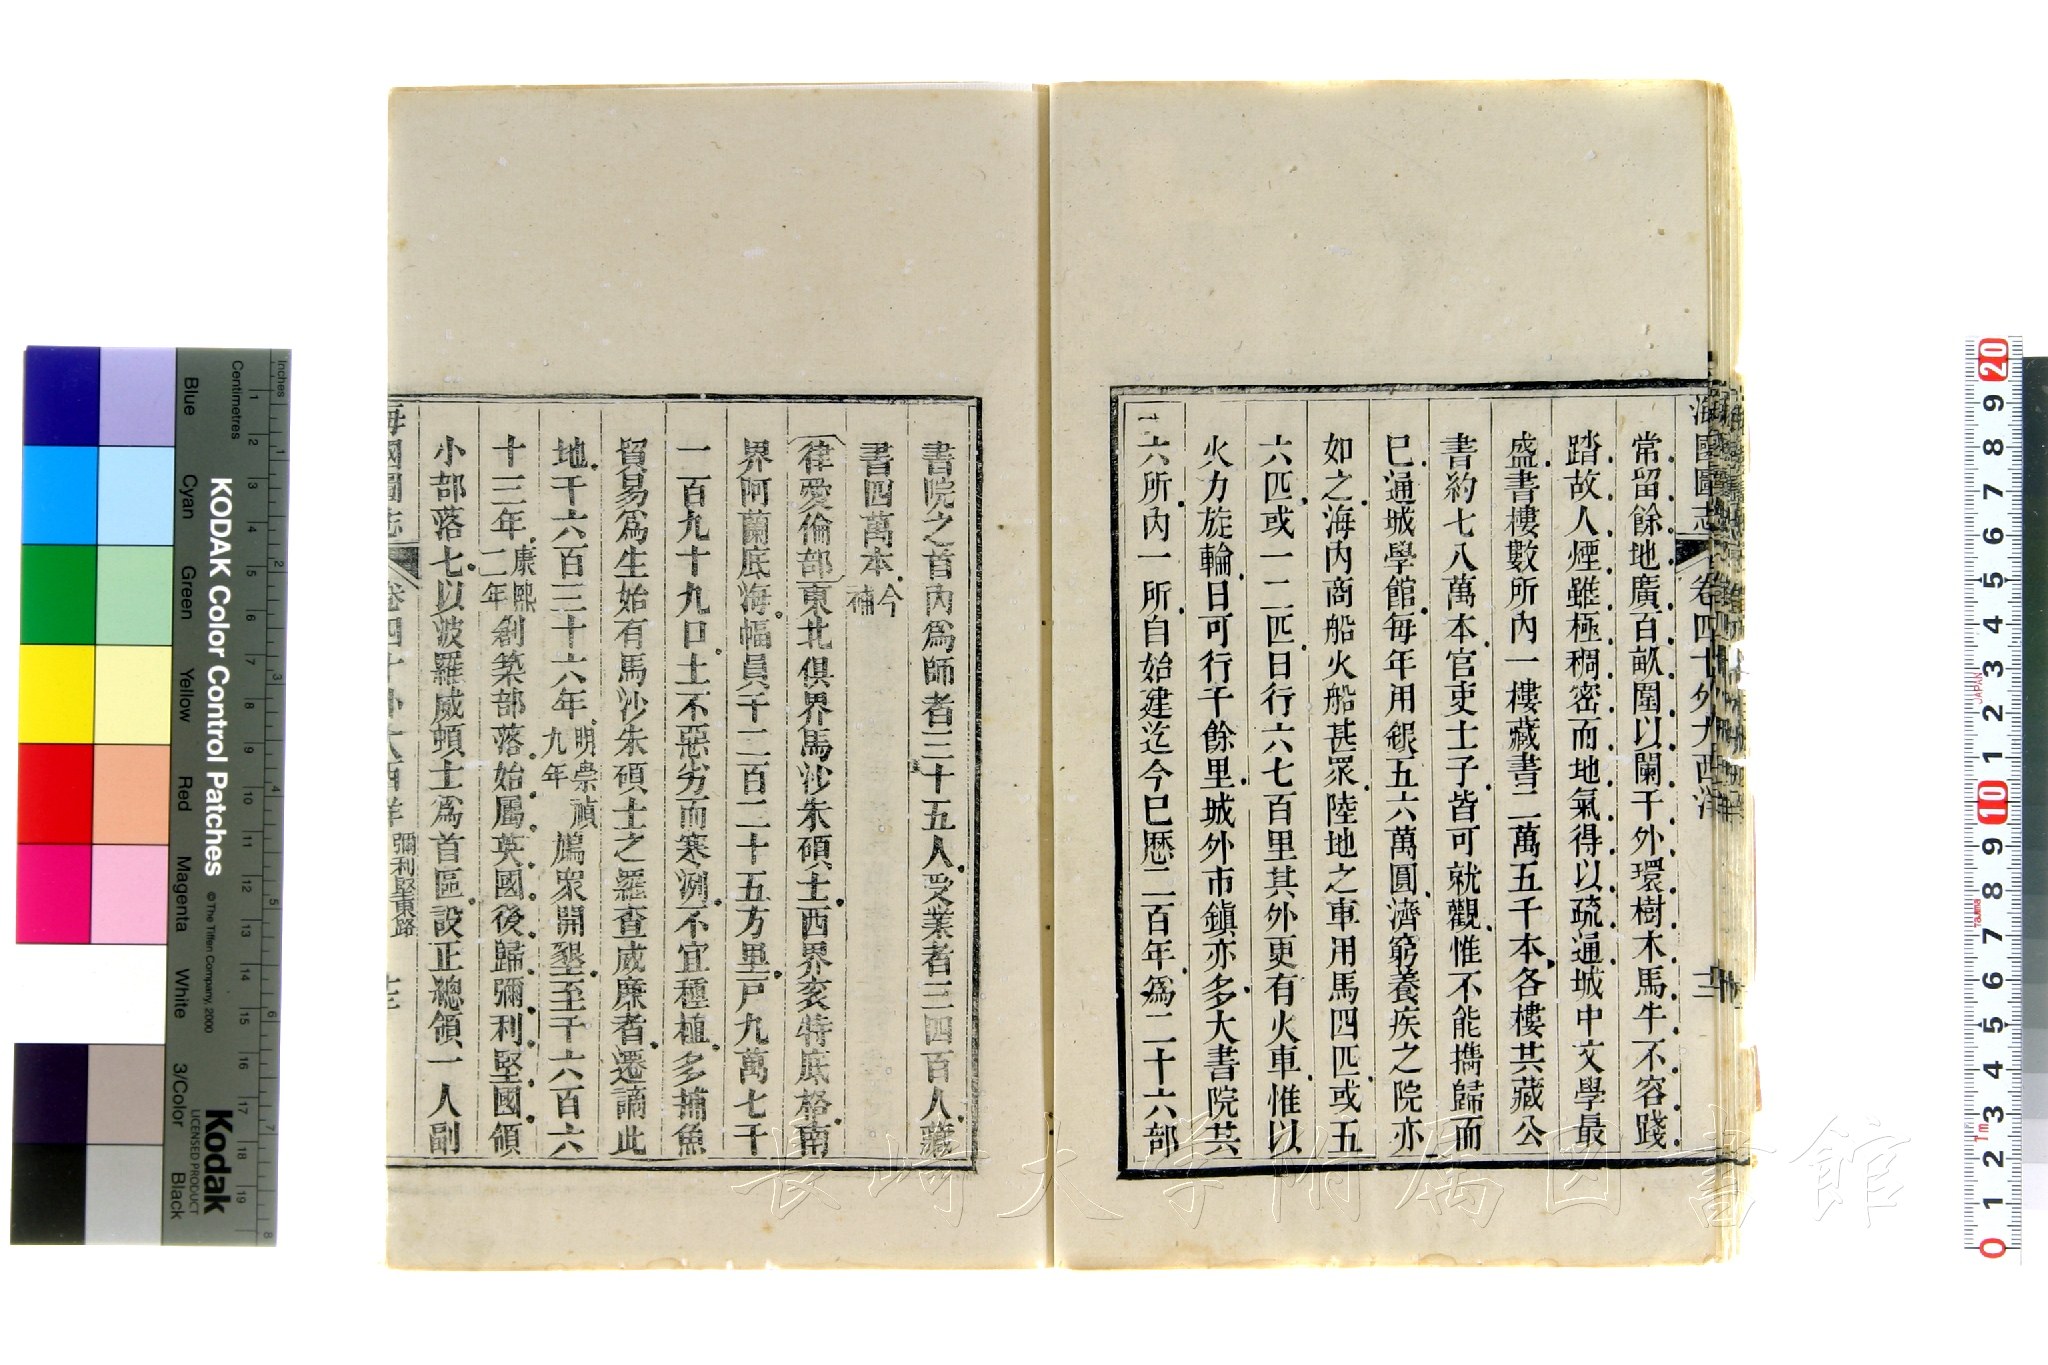 海國圖志 卷四十 外大西洋 十二
常留餘地廣百畝圍以闌干外環樹木馬牛不容踐
踏故人煙雖極稠密而地氣得以疏通城中文學最
盛書樓數所內一樓藏書二萬五千本各樓共藏公
書約七八萬本官吏士子皆可就觀惟不能攜歸而
已通城學館每年用銀五六萬圓濟窮養疾之院亦
如之海內商船火船甚眾陸地之車用馬四匹或五
六匹或一二匹日行六七百里其外更有火車惟以
火力旋輪日可行千餘里城外市鎮亦多大書院共
二六所內一所自始建迄今已歷二百年為二十六部
書院之首內為師者三十五人受業者三四百人藏
書四萬本今補
律愛倫部東北俱界馬沙朱碩士西界袞特底格南
界阿蘭底海幅員千二百二十五方里戶九萬七千
一百九十九口土不惡劣而寒冽不宜種植多捕魚
貿易為生始有馬沙朱碩士之羅查威廉者遷謫此
地千六百三十六年明崇禎九年鳩眾開墾至千六百六
十三年康熙二年創築部落始屬英國後歸彌利堅國領
小部落七以波羅威頓士為首區設正總領一人副
海國圖志 卷四十 外大西洋 彌利堅東路 十三
KODAK Color Control Patches
© The Tiffen Company, 2000
Kodak
LICENSED PRODUCT
Inches
Centimetres
Blue
Cyan
Green
Yellow
Red
Magenta
White
3/Color
Black
長崎大学附属図書館